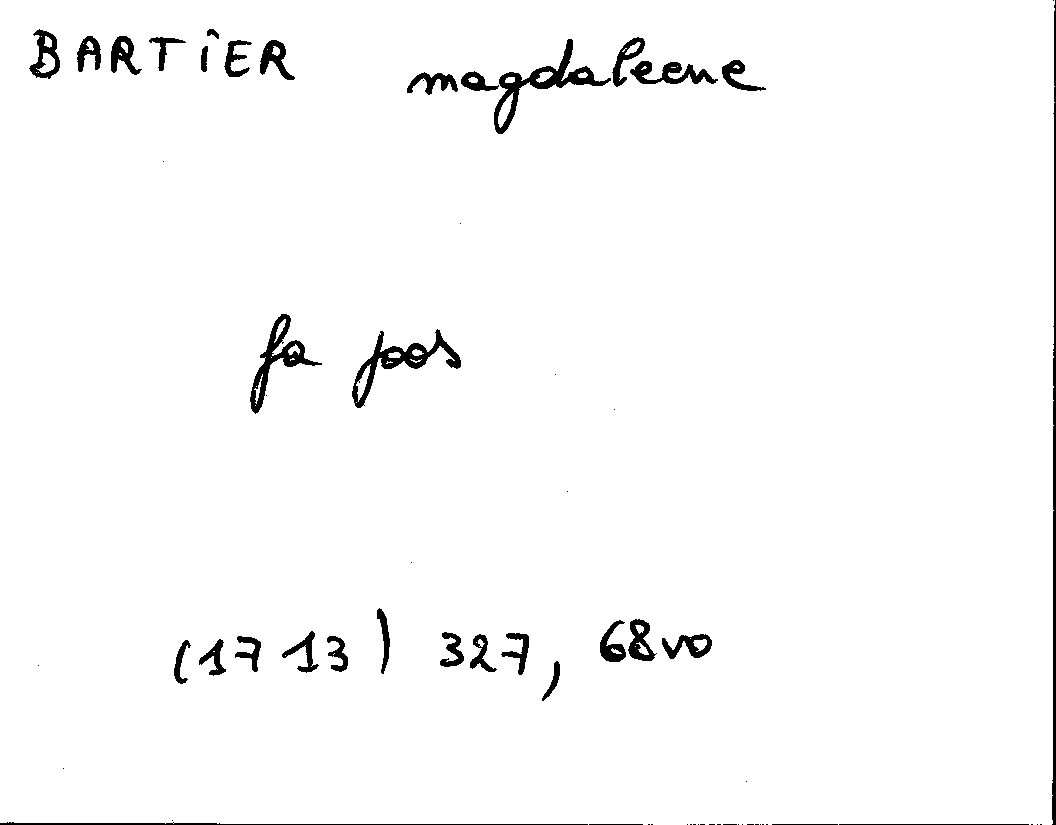 BARTIER magdaleene
fa joos
(1713) 327, 68vo